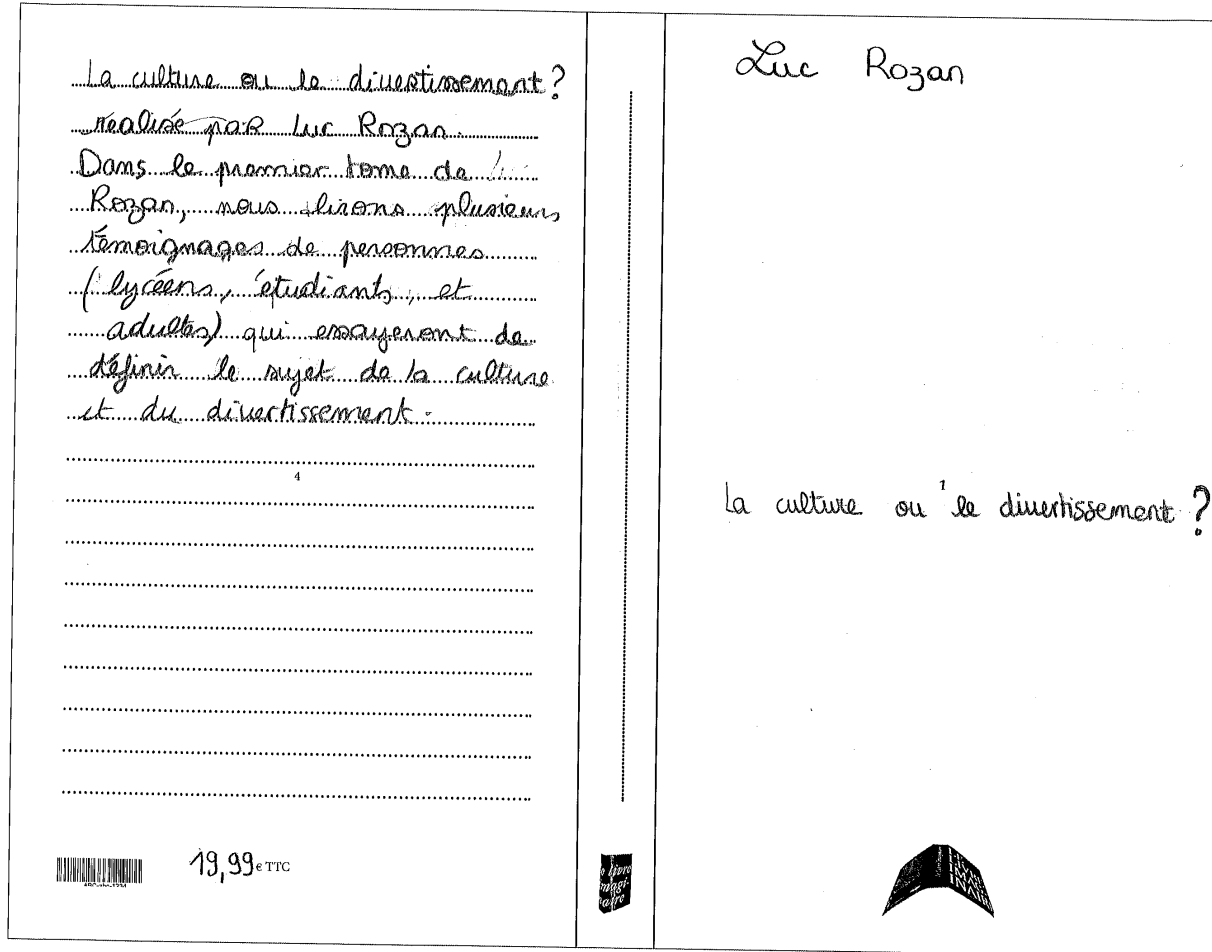 La culture ou le divertissement ?
réalisé par Luc Rozan.
Dans le premier tome de
Rozan, nous lirons plusieurs
témoignages de personnes
(lycéens, étudiants, et
adultes) qui essayeront de
définir le sujet de la culture
et du divertissement.
4
19,99 € TTC
le livre
imagi-
naire
Luc Rozan
1
La culture ou le divertissement ?
LE LIVRE
IMAGI
NAIRE